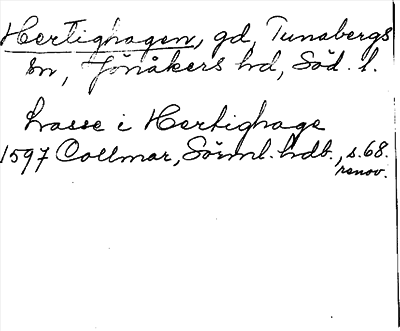 Hertighagen, gd, Tunabergs
sn, Jönåkers hd, Söd. l.
Lasse i Hertighage
1597 Collmar, Sörml. hdb., s. 68.
renov.